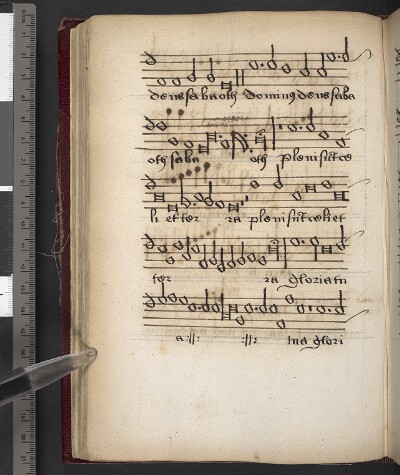 deus sabaoth dominus deus saba
oth saba oth pleni sūt ce
li et ter ra pleni sūt celi et
ter ra gloria tu
a :||: :||: tua glori